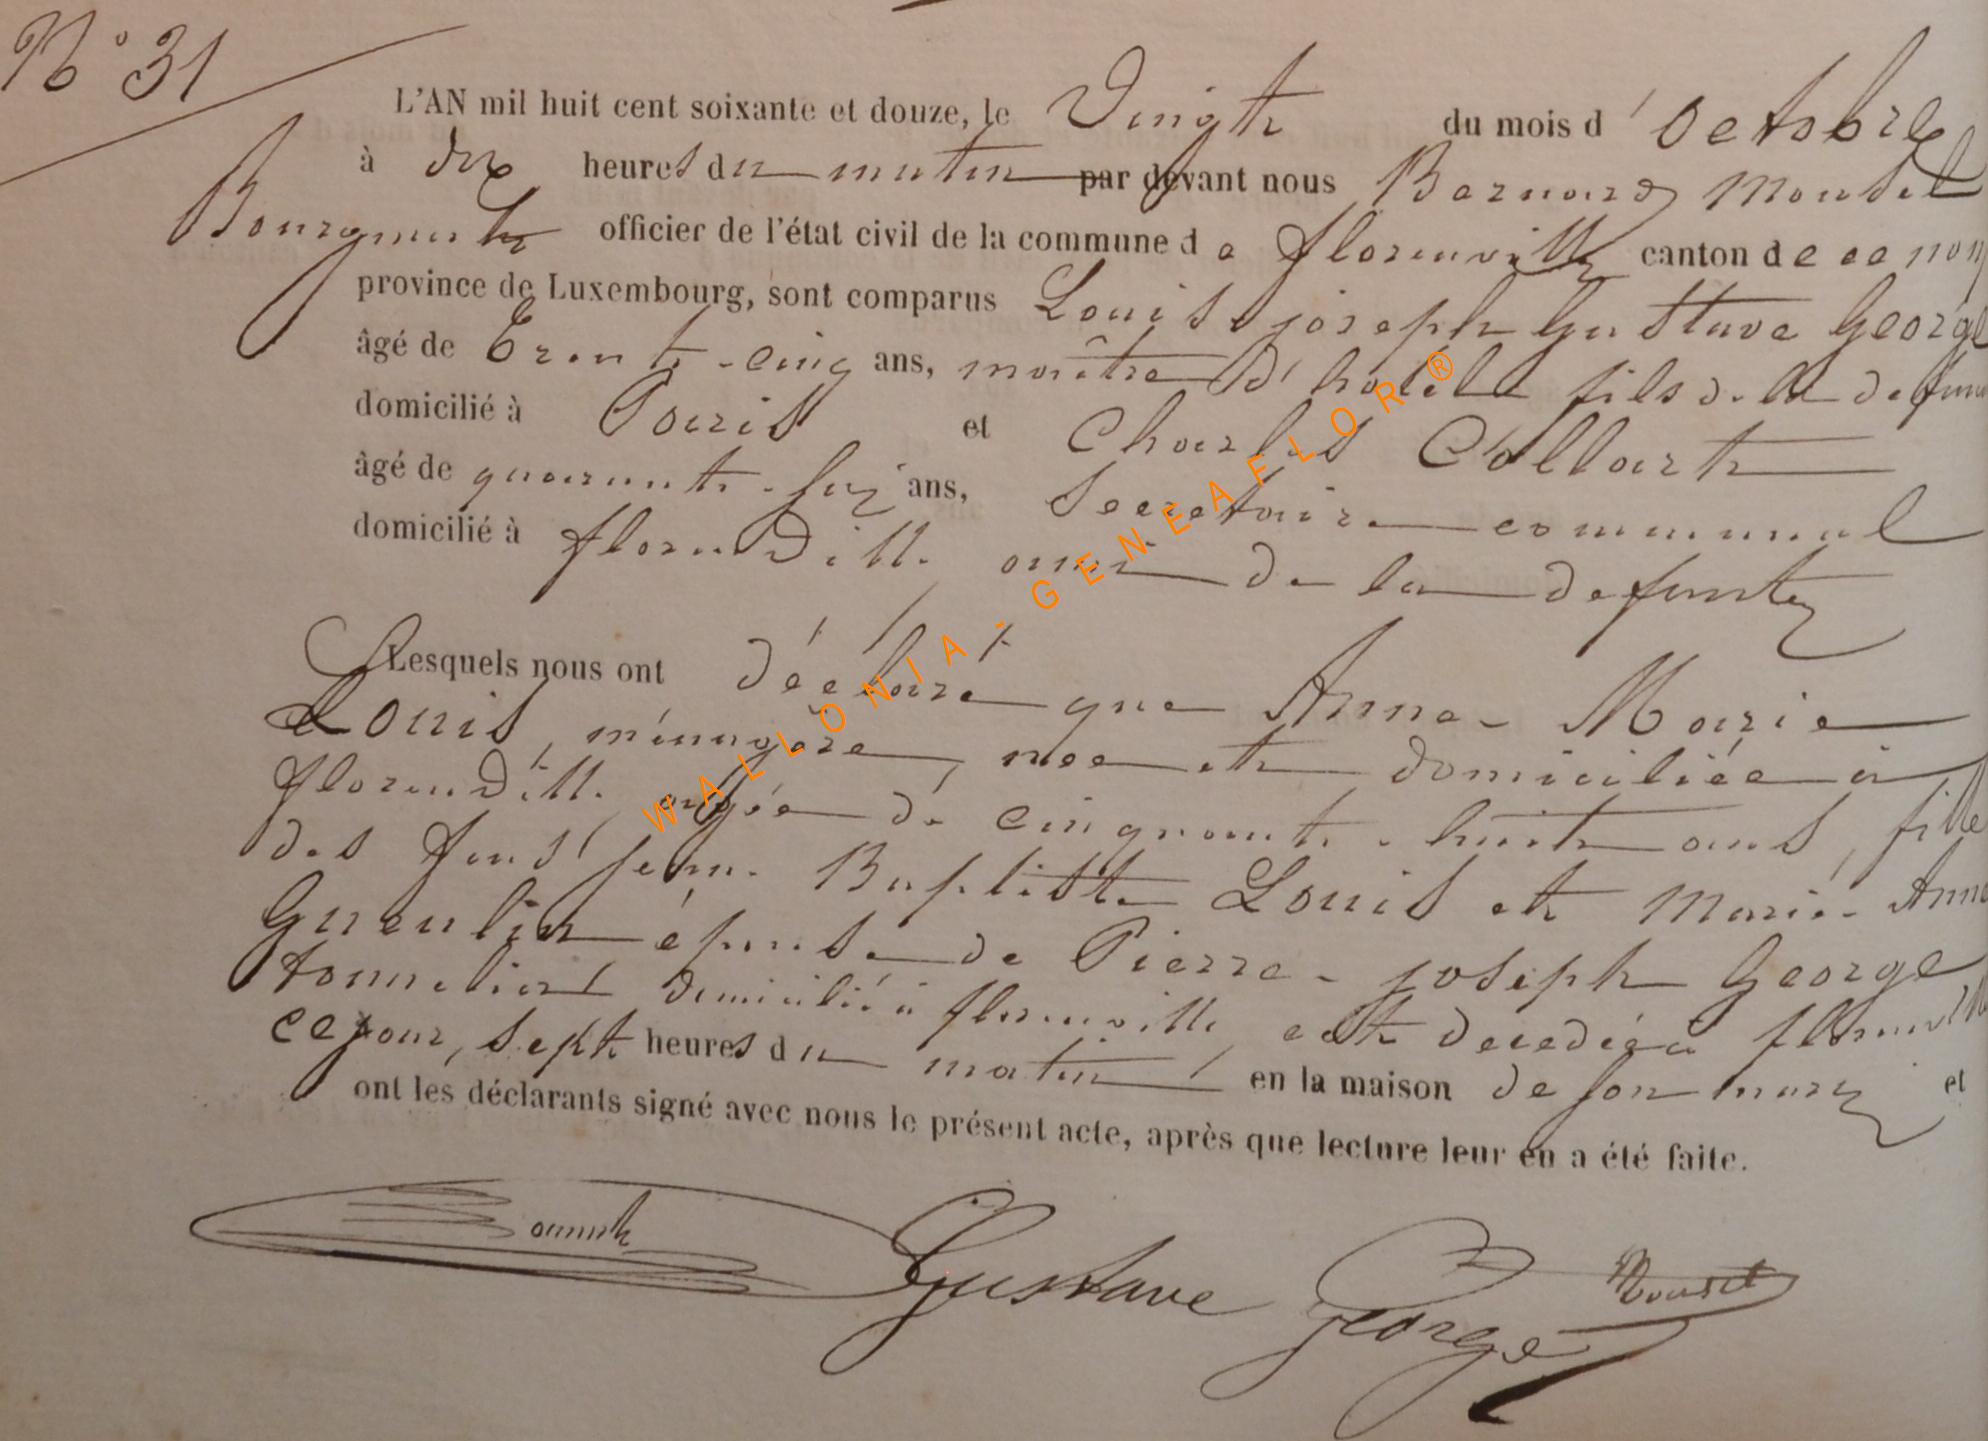 N° 31
L'AN mil huit cent soixante et douze, le Vingt du mois d'Octobre
à dix heures du matin par devant nous Bernard Mousel
Bourgmestre officier de l'état civil de la commune de florenville canton de ce nom
province de Luxembourg, sont comparus Louis, joseph Gustave George
âgé de Trente-cinq ans, maître d'hotel fils de la defunte
domicilié à Paris et Charles Collart
âgé de quarante-six ans, Secretaire communal
domicilié à florenville ami de la defunte
Lesquels nous ont déclaré que Anne-Marie
Louis, ménagère, née et domiciliée à
florenville agée de cinquante-huit ans, fille
des feus jean-Baptiste Louis et Marie-Anne
épouse de Pierre-joseph George
tonnelier domicilié à florenville, est decedée à florenville
ce jour, sept heures du matin en la maison de son mari et
ont les déclarants signé avec nous le présent acte, après que lecture leur en a été faite.
Gustave George Mousel
WALLONIA-GENEAFLOR®